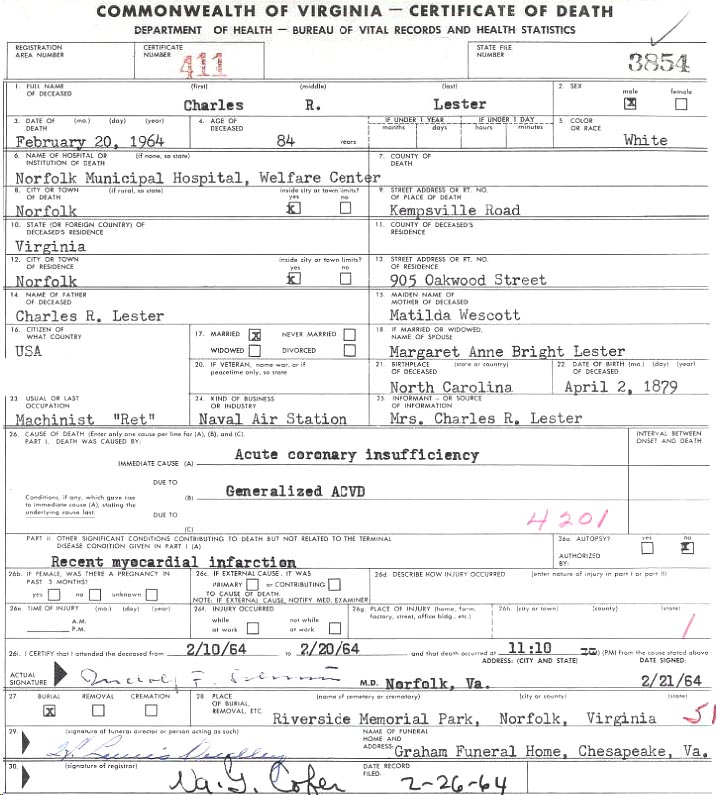 COMMONWEALTH OF VIRGINIA — CERTIFICATE OF DEATH
DEPARTMENT OF HEALTH — BUREAU OF VITAL RECORDS AND HEALTH STATISTICS
REGISTRATION AREA NUMBER
CERTIFICATE NUMBER 411
STATE FILE NUMBER 3854
1. FULL NAME OF DECEASED (first) (middle) (last)
Charles R. Lester
2. SEX male female
X
3. DATE OF DEATH (mo.) (day) (year)
February 20, 1964
4. AGE OF DECEASED
84 years
IF UNDER 1 YEAR months days
IF UNDER 1 DAY hours minutes
5. COLOR OR RACE
White
6. NAME OF HOSPITAL OR INSTITUTION OF DEATH (if none, so state)
Norfolk Municipal Hospital, Welfare Center
7. COUNTY OF DEATH
8. CITY OR TOWN OF DEATH (if rural, so state) inside city or town limits? yes no
Norfolk X
9. STREET ADDRESS OR RT. NO. OF PLACE OF DEATH
Kempsville Road
10. STATE (OR FOREIGN COUNTRY) OF DECEASED'S RESIDENCE
Virginia
11. COUNTY OF DECEASED'S RESIDENCE
12. CITY OR TOWN OF RESIDENCE inside city or town limits? yes no
Norfolk X
13. STREET ADDRESS OR RT. NO. OF RESIDENCE
905 Oakwood Street
14. NAME OF FATHER OF DECEASED
Charles R. Lester
15. MAIDEN NAME OF MOTHER OF DECEASED
Matilda Wescott
16. CITIZEN OF WHAT COUNTRY
USA
17. MARRIED X NEVER MARRIED
WIDOWED DIVORCED
18. IF MARRIED OR WIDOWED, NAME OF SPOUSE
Margaret Anne Bright Lester
20. IF VETERAN, name war, or if peacetime only, so state
21. BIRTHPLACE OF DECEASED (state or country)
North Carolina
22 DATE OF BIRTH (mo.) (day) (year) OF DECEASED
April 2, 1879
23. USUAL OR LAST OCCUPATION
Machinist "Ret"
24. KIND OF BUSINESS OR INDUSTRY
Naval Air Station
25. INFORMANT – OR SOURCE OF INFORMATION
Mrs. Charles R. Lester
26. CAUSE OF DEATH (Enter only one cause per line for (A), (B), and (C).
PART I. DEATH WAS CAUSED BY:
INTERVAL BETWEEN ONSET AND DEATH
IMMEDIATE CAUSE (A) Acute coronary insufficiency
DUE TO
Conditions, if any, which gave rise to immediate cause (A), stating the underlying cause last.
(B) Generalized ACVD
DUE TO
(C)
4201
PART II. OTHER SIGNIFICANT CONDITIONS CONTRIBUTING TO DEATH BUT NOT RELATED TO THE TERMINAL DISEASE CONDITION GIVEN IN PART I (A)
Recent myocardial infarction
26a AUTOPSY? yes no
X
AUTHORIZED BY:
26b. IF FEMALE, WAS THERE A PREGNANCY IN PAST 3 MONTHS?
yes no unknown
26c. IF EXTERNAL CAUSE, IT WAS
PRIMARY or CONTRIBUTING
TO CAUSE OF DEATH.
NOTE: IF EXTERNAL CAUSE, NOTIFY MED. EXAMINER
26d. DESCRIBE HOW INJURY OCCURRED (enter nature of injury in part I or part II)
26e TIME OF INJURY (mo.) (day) (year)
A.M.
P.M.
26f. INJURY OCCURRED
while at work not while at work
26g. PLACE OF INJURY (home, farm, factory, street, office bldg., etc.)
26h. (city or town) (county) (state)
26i. I CERTIFY that I attended the deceased from 2/10/64 to 2/20/64 and that death occurred at 11:10 (PM) from the cause stated above
ADDRESS: (CITY AND STATE) DATE SIGNED:
ACTUAL SIGNATURE M.D. Norfolk, Va. 2/21/64
27 BURIAL REMOVAL CREMATION
X
28. PLACE OF BURIAL, REMOVAL, ETC. (name of cemetery or crematory) (city or county) (state)
Riverside Memorial Park, Norfolk, Virginia 51
29. (signature of funeral director or person acting as such)
NAME OF FUNERAL HOME AND ADDRESS: Graham Funeral Home, Chesapeake, Va.
30. (signature of registrar)
DATE RECORD FILED: 2-26-64